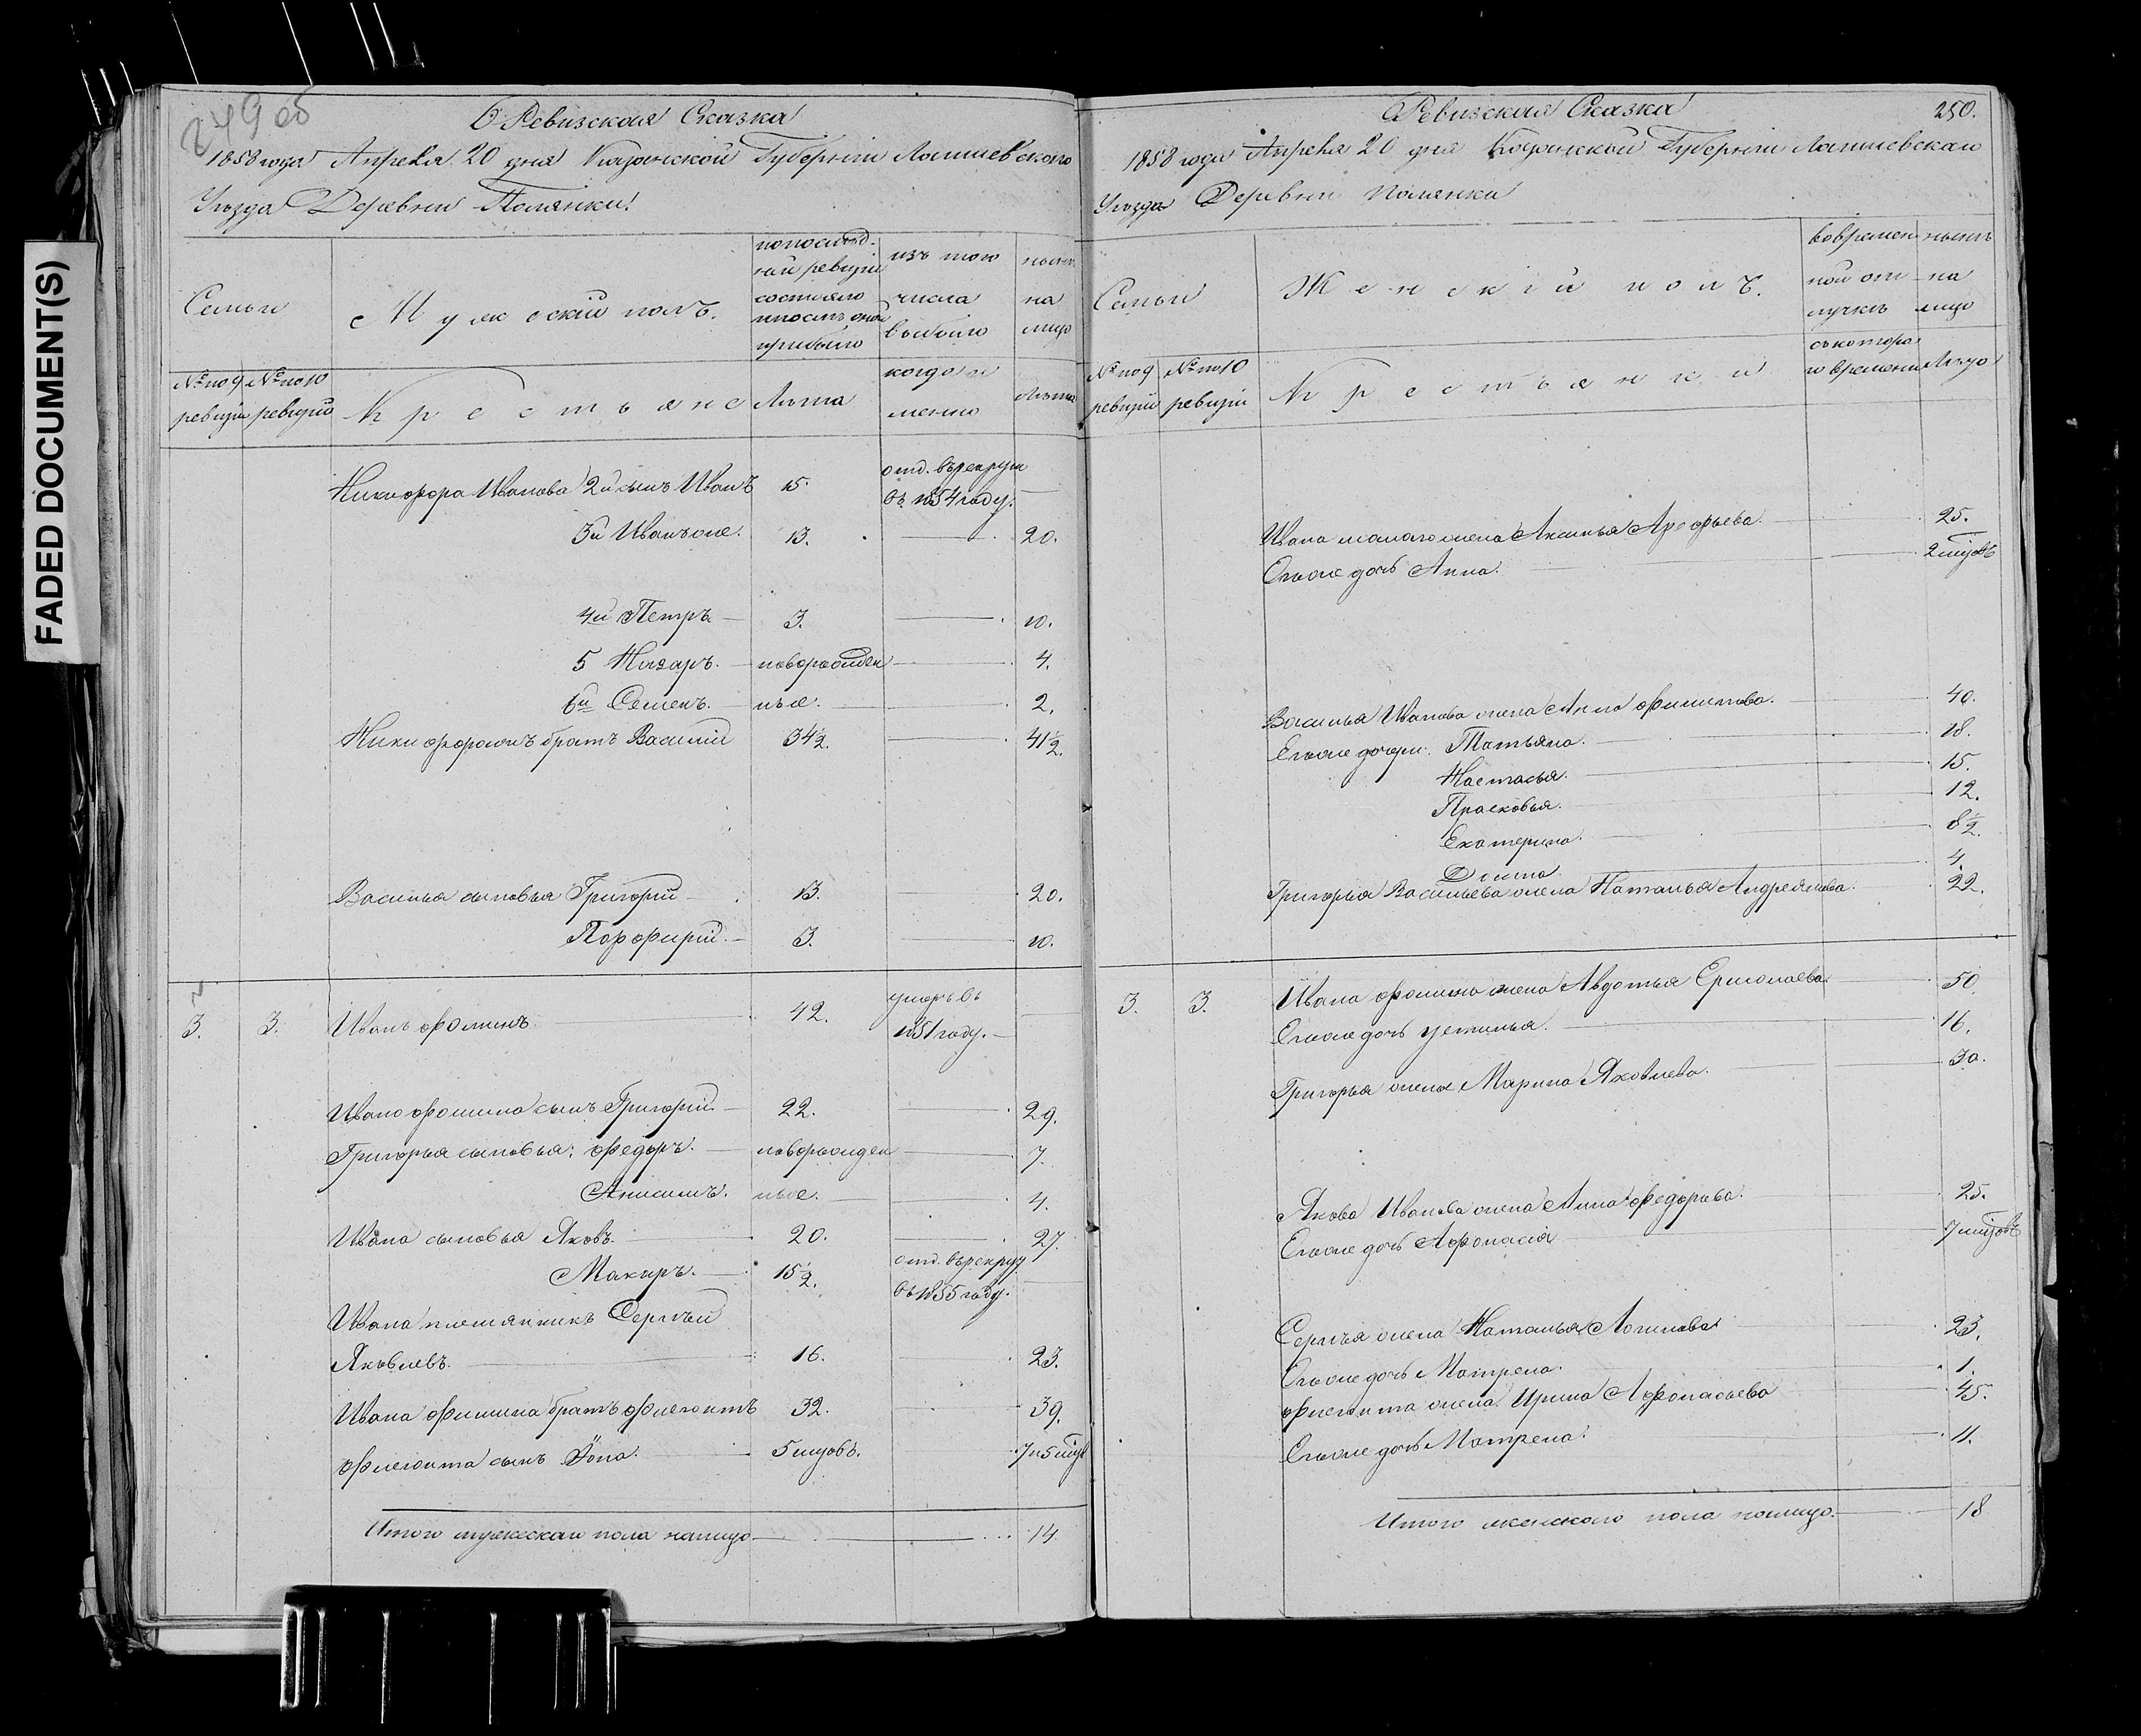 FADED DOCUMENT(S)
249 об
Ревизская Сказка
1858 года Апреля 20 дня Казанской Губернiи Лаишевского
Уѣзда Деревни Полянки
Семьи
Мужескiй полъ.
по послѣд-
ней ревизiи
состояло
и послѣ оной
прибыло
изъ того
числа
выбыло
нынѣ
на
лицо
№ по 9
ревизiи
№ по 10
ревизiи
Крестьяне
Лѣта
когда
именно
Лѣта
Никифора Иванова 2й сынъ Иванъ 15. отд. въ рекруты
въ 1854 году.
3й Иванъ же. 13. 20.
4й Петръ 3. 10.
5 Назаръ. новорожден 4.
6й Семенъ. ные. 2.
Никифоровъ братъ Василiй 34½. 41½.
Василья сыновья Григорiй 13. 20.
Порфирiй. 3. 10.
3. 3. Иванъ Фоминъ. 42. умеръ въ
1851 году.
Ивана Фомина сынъ Григорiй 22. 29.
Григорья сыновья: Федоръ. новорожден 7.
Анисимъ. ные. 4.
Ивана сыновья Яковъ. 20. 27.
Макаръ. 15½. отд. въ рекрут
въ 1855 году.
Ивана племянникъ Сергѣй
Яковлевъ. 16. 23.
Ивана Фомина братъ Флегонтъ 32. 39.
Флегонта сынъ Iона. 5 мцовъ. 7 и 5 мцв
Итого мужескаго пола налицо 14
250.
Ревизская Сказка
1858 года Апреля 20 дня Казанской Губернiи Лаишевскаго
Уѣзда Деревни Полянки
Семьи
Женскiй полъ.
во времен-
ной от-
лучкѣ
нынѣ
на
лицо
№ по 9
ревизiи
№ по 10
ревизiи
Крестьянки
съ котора-
го времени
Лѣта
Ивана малаго жена Аксинья Арефьева. 25.
Его же дочь Анна. 2 мцовъ
Василья Иванова жена Анна Филипова. 40.
Его же дочери: Татьяна. 18.
Настасья. 15.
Прасковья. 12.
Екатерина. 8½.
4.
Григорья Васильева жена Наталья Андреянова. 22.
3. 3. Ивана Фомина жена Авдотья Ермолаева 50
Его же дочь Устинья. 16.
Григорья жена Марина Яковлева. 30.
Якова Иванова жена Анна Федорова. 25.
Его же дочь Афонасiя 7 мцовъ
Сергѣя жена Наталья Логинова 23.
Его же дочь Матрена. 1.
Флегонта жена Ирина Афонасьева 45.
Его же дочь Матрена. 11.
Итого женскаго пола налицо. 18